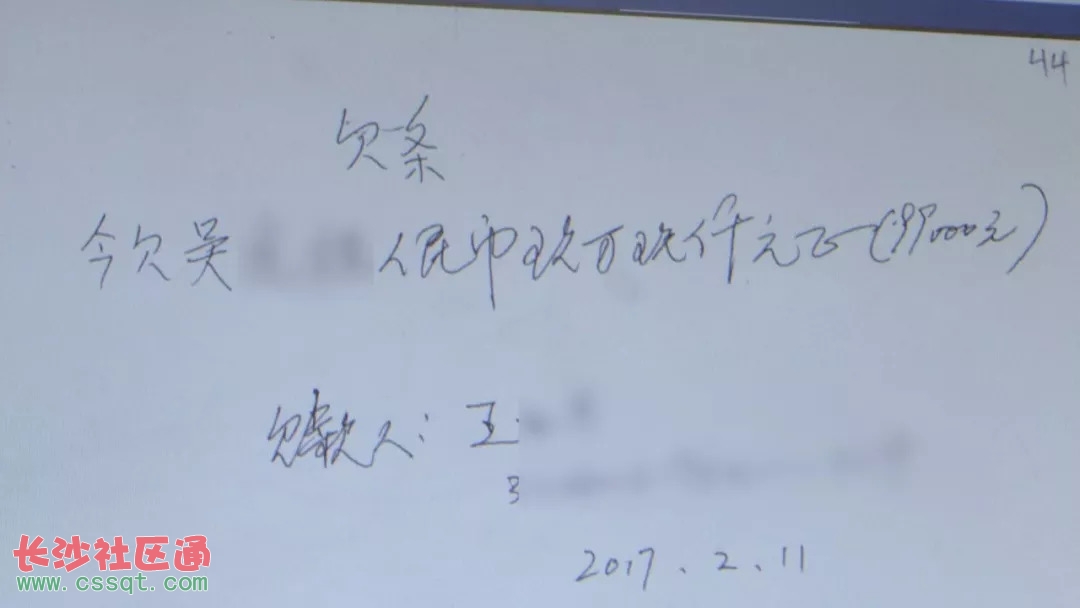 44
欠条
今欠吴 人民币玖万玖仟元正(99000元)
欠款人：王
3
2017.2.11
长沙社区通
www.cssqt.com